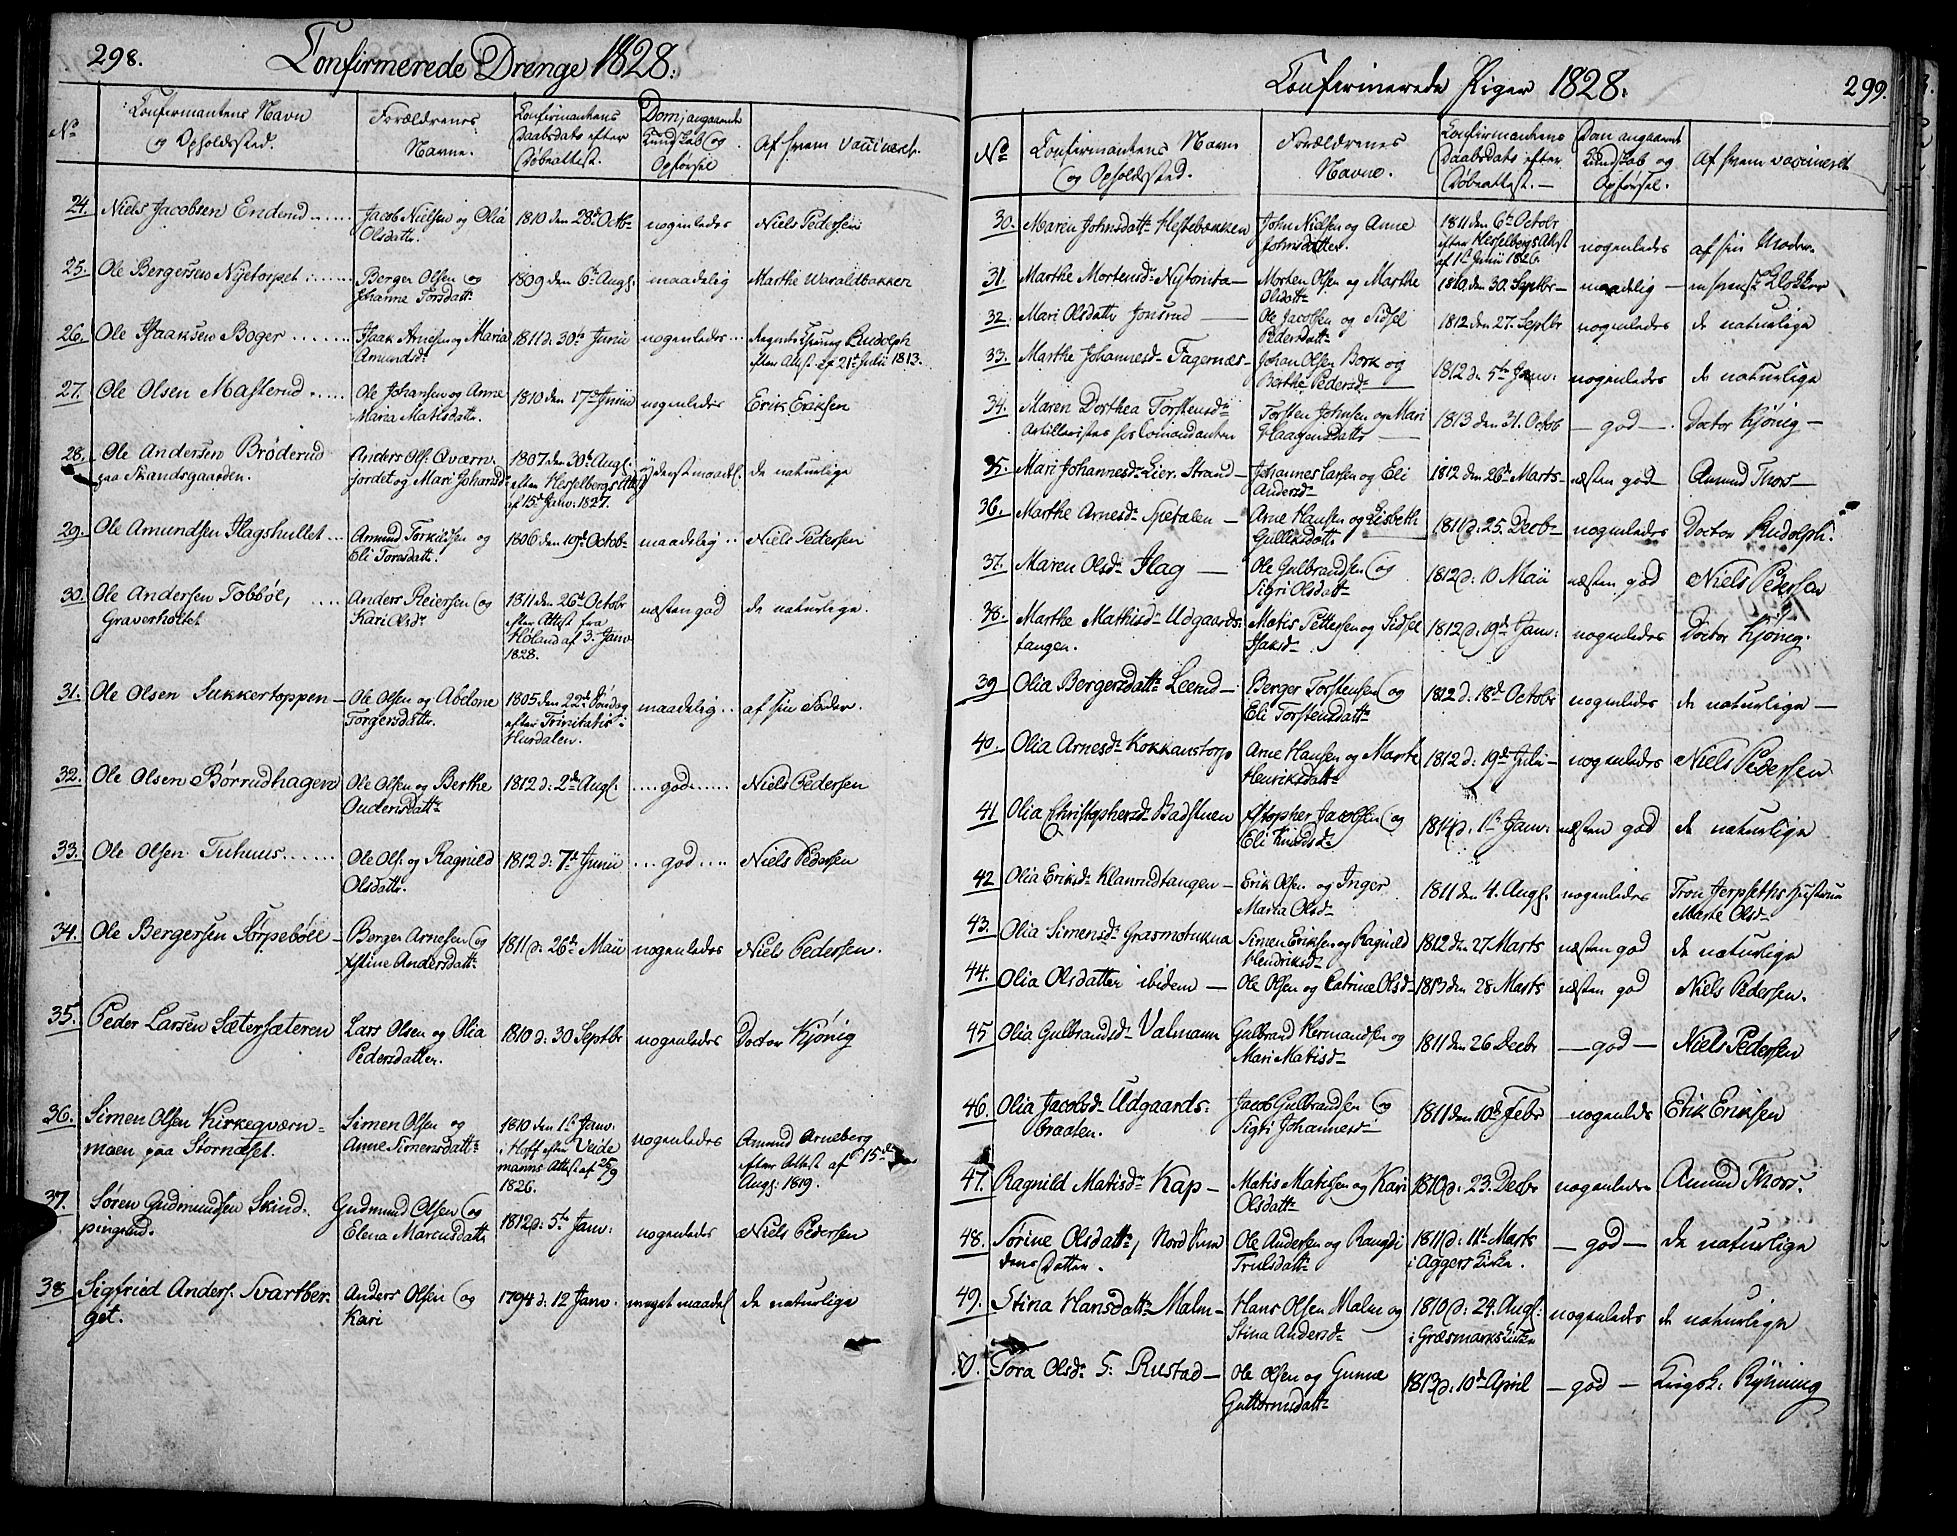 298.
Confirmerede Drenge 1828.
No
Confirmantens Navn
og Opholdssted.
Forældrenes
Navne.
Confirmantens
Daabsdato efter
Døbeattest.
Dom angaaende
Kundskab og
Opførsel
Af hvem vaccineret.
24. Niels Jacobsen Enderud
Jacob Nielsen og Olia
Olsdattr.
1810 den 28d Octb-
nogenledes
Niels Pedersen
25. Ole Bergersen Nyetorpet
Berger Olsen og
Johanne Torsdattr
1809 den 6te Augs.
maadelig
Marthe Waraldbakken
26. Ole Isaaksen Boger
Isaak Arnesen og Maria
Amundsd-
1811 d. 30te Junii
nogenledes
Rudolph
efter Attest af 21de Julii 1813.
27. Ole Olsen Masterud
Ole Johansen og Anne
Maria Matisdattr.
1810 den 17de Junii
nogenledes
Erik Eriksen
28. Ole Andersen Brøderud
paa Skandsgaarden.
Anders Ols. Qværn-
jordet og Mari Johansd-
1807 den 30te Augs.
efter Hesselbergs Attest
af 15de Janv. 1827.
yderst maadel.
de naturlige
29. Ole Amundsen Flagshullet
Amund Torkildsen og
Eli Toresdattr.
1806 den 19de Octob-
maadelig
Niels Pedersen
30. Ole Andersen Tobbøl,
Graverholtet
Anders Reiersen og
Kari Olsdr
1811 den 26d Octobr
efter Attest fra
Høland af 3. Janv
1828.
næsten god
de naturlige.
31. Ole Olsen Sukkertoppen-
Ole Olsen og Abelone
Torgersdattr.
1805 den 22de Søndag
efter Trinitatis i
Hurdalen.
maadelig
af sin Fader.
32. Ole Olsen Børrudhagen
Ole Olsen og Berthe
Oudensdattr
1812 d: 2den Augs.
god
Niels Pedersen
33. Ole Olsen Tuhuus
Ole Ols. og Ragnild
Olsdattr.
1812 d: 7de Junii
god
Niels Pedersen
34. Ole Bergersen Sørpebøle-
Berger Arnesen og
Xstine Andersdattr
1811 d. 26de Maii
nogenledes
Niels Pedersen.
35. Peder Larsen Sætersæteren
Lars Olsen og Olia
Pedersdatter.
1810 d: 30 Septbr
nogenledes
Doctor Kjønig
36. Simen Olsen Kirkeqværn-
moen paa Stornæset.
Simen Olsen og
Anne Simensdattr
1810 den 1ste Janv.
i Hoff efter Veide
manns Attest af 25/9
1826.
nogenledes
Amund Arneberg
efter Attest af 15de
Augs: 1819.
37. Søren Gudmundsen Skind-
pungrud.
Gudmund Olsen og
Elena Marcusdattr
1812 d: 5te Janv.
nogenledes
Niels Pedersen
38 Sigfried Anders. Svartber-
get.
Anders Olsen og
Kari
1794 d: 12 Janv.
meget maadel
de naturlige
Confirmerede Piger 1828.
299.
No
Confirmantens Navn
og Opholdssted.
Forældrenes
Navne.
Confirmantens
Daabsdato efter
Døbeattest.-
Dom angaaende
Kundskab og
Opførsel.
Af hvem vaccineret
30. Maren Johnsdattr Hestebækken
John Nielsen og Anne
Johnsdatter.
1811 den 6te Octobr
efter Hesselbergs Attest
af 1ste Junii 1826.
nogenledes
af sin Moder.
31. Marthe Mortensd- Nytomta-
Morten Olsen og Marthe
Olsdattr
1810. den 30. Septbr-
maadelig
en svensk Klokker
32. Mari Olsdattr Jonsrud
Ole Jacobsen og Sidsel
Pedersdattr
1812 den 27. Septbr
nogenledes
de naturlige
33. Marthe Johannesd- Fagernæs-
Johan Olsen Bork og
Berthe Pedersd-
1812 d: 5te Janv:
nogenledes
de naturlige
34. Maren Dorthea Torstensd-
Artilleristen hos Comandanten
Torsten Johnsen og Mari
Haagensdattr
1813 den 31. Octob
god
Doctor Kjønig-
35. Mari Johannesd- Lier. Strand-
Johannes Larsen og Eli
Andersd-
1812 den 26de Marts-
næsten god-
Amund Thors-
36. Marthe Arnesd- Spetalen -
Arne Hansen og Lisbeth
Gulliksdattr
1811 d: 25. Decb-
nogenledes
Doctor Rudolph.
37. Maren Olsd- Flag -
Ole Gulbrandsen og
Sigri Olsdattr
1812 d: 10 Maii
næsten god
Niels Pedersen
38. Marthe Mathisd- Udgaards-
tangen.
Matis Pettersen og Sidsel
Isaksd-
1812 d: 19de Janv:
nogenledes
Doctor Kjønig.
39 Olia Bergersdattr Leerud-
Berger Torstensen og
Eli Torstensdattr
1812 d: 18de Octobr
nogenledes
de naturlige-
40. Olia Arnesd- Kokkanstorp
Arne Hansen og Marte
Henriksdattr
1812 d: 19de Juli-
nogenledes
Niels Pedersen
41 Olia Christophersd- Badstuen
Xstopher Jacobsen og
Eli Knudsd-
1814 d. 1ste Janv:
næsten god
de naturlige
42 Olia Eriksd- Klanrudtangen-
Erik Olsen og Inger
Maria Olsd-
1811 den 4. Augs.
nogenledes
Tron Jerpseths Hustrue
Marte Olsd-
43. Olia Simensd- Grasmotukna
Simen Eriksen og Ragnild
Hendriksd-
1812 den 27 Marts
næsten god
de naturlige
44. Olia Olsdatter ibidem -
Ole Olsen og Catrine Olsd-
1813 den 28 Marts
næsten god
Niels Pedersen.
45 Olia Gulbrandsd- Valmann
Gulbrand Hermandsen og
Mari Matisd-
1811 den 26 Decbr
-god-
Niels Pedersen
46. Olia Jacobsd- Udgaards-
braaten.
Jacob Gulbrandsen og
Sigri Johannesd-
1811 den 10de Febr
nogenleds
Erik Eriksen
47. Ragnild Matisd- Kap-
Matis Matisen og Kari
Olsdattr
1810 d. 23. Decbr
nogenledes
Amund Thors.
48. Sørine Olsdattr, Nord
dens Datter.
Ole Andersen og Rangdi
Trulsdattr
1811 d: 11te Marts
i Aggers Kirke.
-god-
de naturlige
49. Stina Hansdattr Malm-
Hans Olsen Malm og
Stina Andersd-
1810 d: 24. Augs:
i Græsmarks Kirke
nogenledes
de naturlige
50. Tora Olsd- S: Rustad-
Ole Olsen og Gunne
Guttormsdattr
1813 d: 10de April
-god-
Ryhning